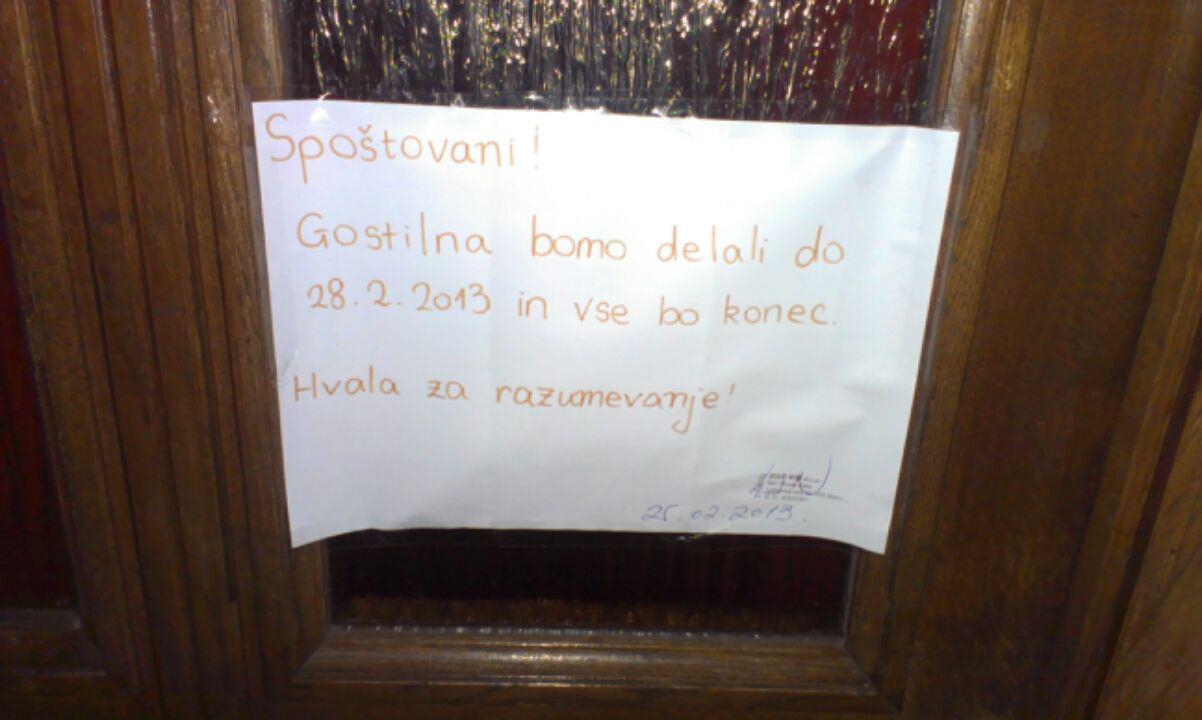 Spoštovani!
Gostilna bomo delali do
28.2.2013 in vse bo konec.
Hvala za razumevanje!
25.02.2013.